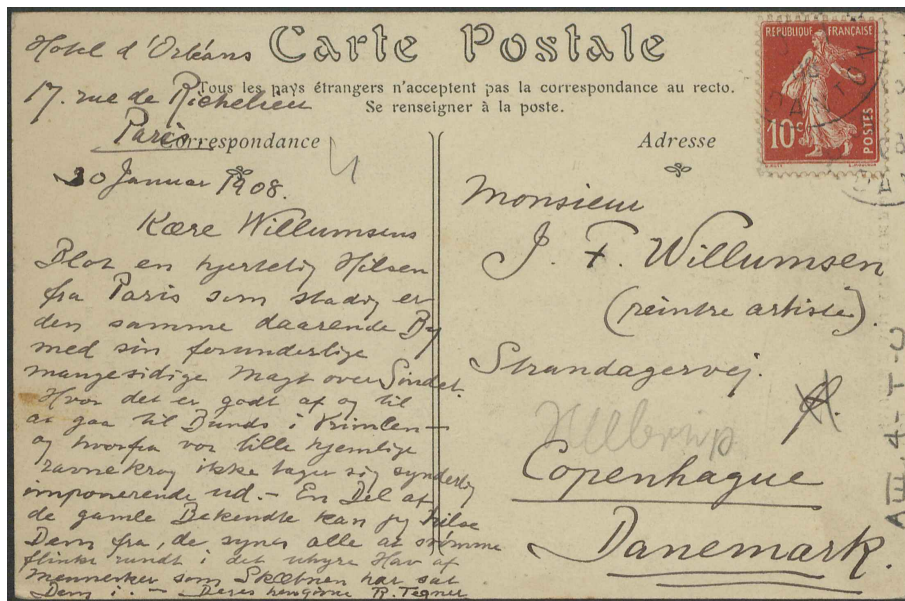 Carte Postale
Tous les pays étrangers n'acceptent pas la correspondance au recto.
Se renseigner à la poste.
Correspondance
Adresse
Hotel d'Orléans
17. rue de Richelieu
Paris
30 Januar 1908.
Kære Willumsens
Blot en hjertelig Hilsen
fra Paris som stadig er
den samme daarende By
med sin forunderlige
mangesidige Magt over Sindet.
Hvor det er godt af og til
at gaa til Bunds i Vrimlen –
og hvorfra vor lille hjemlige
ravnekrog ikke tager sig synderlig
imponerende ud. – En Del af
de gamle Bekendte kan jeg hilse
Dem fra, de synes alle at svömme
flinkt rundt i det uhyre Hav af
Mennesker som Skæbnen har sat
Dem i. – Deres hengivne R. Tegner
REPUBLIQUE FRANÇAISE
10c POSTES
Monsieur
J. F. Willumsen
(peintre artiste).
Strandagervej.
Hellerup
Copenhague
Danemark.